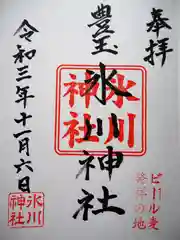 奉拝
豊玉
氷川神社
氷川
神社
ビール麦
発祥の地
令和三年十一月六日
氷川
神社